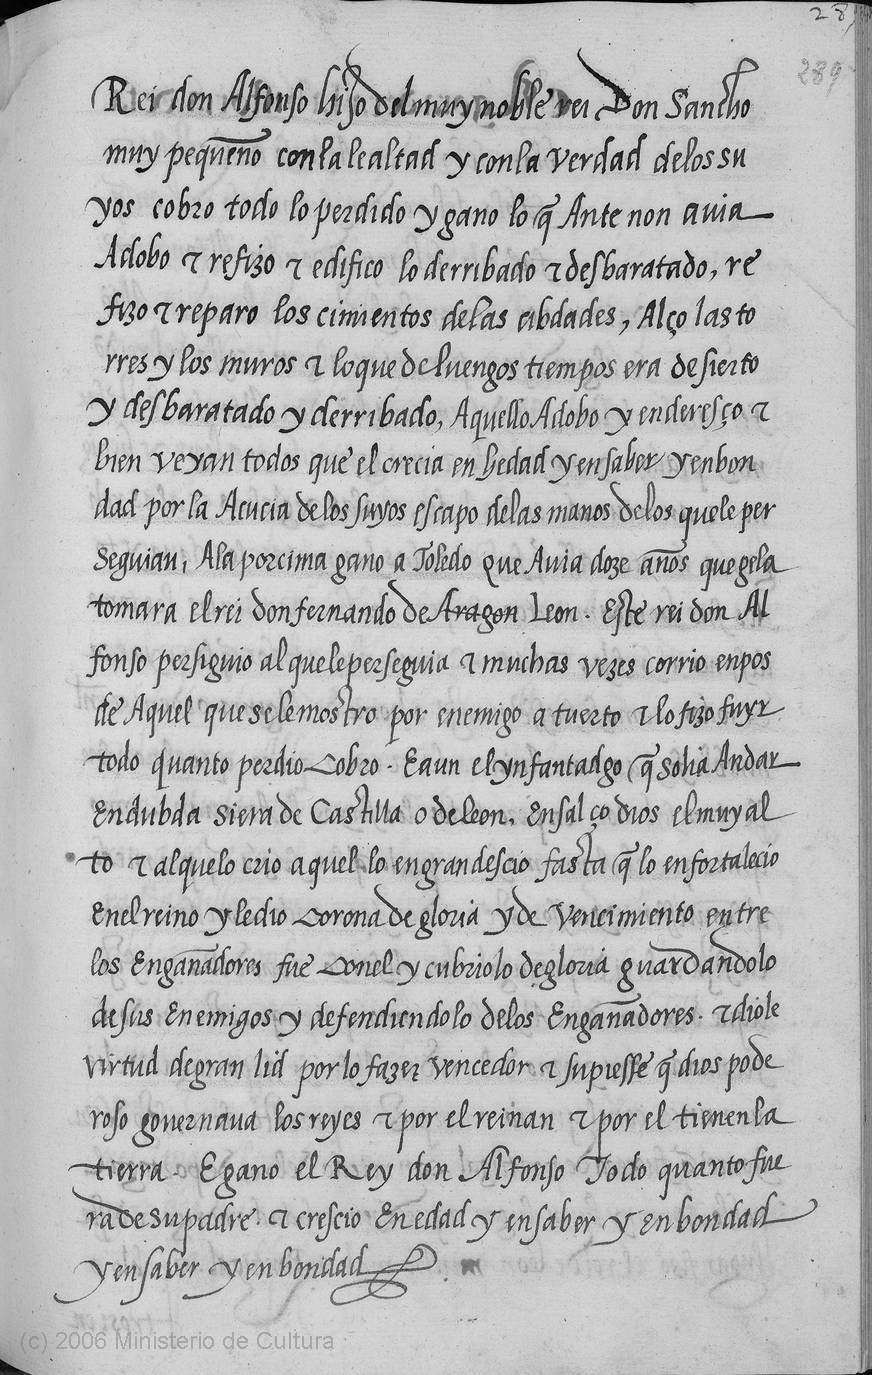 28
289
Rei don Alfonso hijo del muy noble rei Don Sancho
muy pequeño con la lealtad y con la verdad de los su
yos cobro todo lo perdido y gano lo q̃ Ante non auia
Adobo τ refizo τ edifico lo derribado τ desbaratado, re
fizo τ reparo los cimientos de las cibdades, Alço las to
rres y los muros τ lo que de luengos tiempos era desierto
y desbaratado y derribado, Aquello Adobo y enderesço τ
bien veyan todos que el crecia en hedad y en saber y en bon
dad por la Acucia de los suyos escapo de las manos de los que le per
seguian, A la porcima gano a Toledo que Auia doze años que gela
tomara el rei don fernando de Aragon Leon. Este rei don Al
fonso persiguio al que le perseguia τ muchas vezes corrio en pos
de Aquel que se le mostro por enemigo a tuerto τ lo fizo fuyr
todo quanto perdio Cobro. E aun el ynfantadgo q̃ solia Andar
En dubda si era de Castilla o de leon, Ensalço dios el muy al
to τ al que lo crio aquel lo engrandescio fasta q̃ lo enfortalecio
En el reino y le dio Corona de gloria y de vencimiento entre
los Engañadores fue Con el y cubriolo de gloria guardandolo
de sus Enemigos y defendiendolo de los Engañadores. τ diole
virtud de gran lid por lo fazer vencedor τ supiesse q̃ dios pode
roso governaua los reyes τ por el reinan τ por el tienen la
tierra. E gano el Rey don Alfonso Todo quanto fue
ra de su padre. τ crescio En edad y en saber y en bondad
y en saber y en bondad
(c) 2006 Ministerio de Cultura